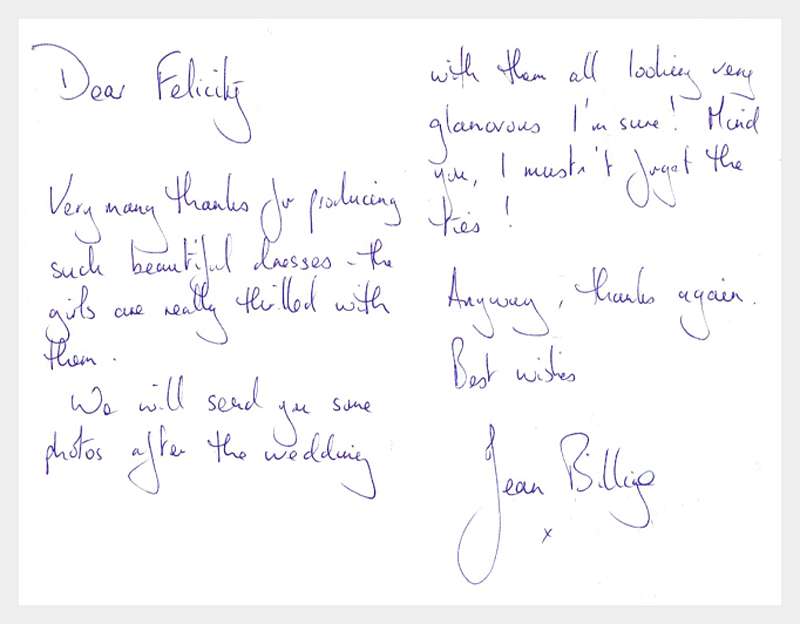 Dear Felicity
Very many thanks for producing
such beautiful dresses - the
girls are really thrilled with
them.
We will send you some
photos after the wedding
with them all looking very
glamorous I'm sure! Mind
you, I mustn't forget the
ties!
Anyway, thanks again.
Best wishes
Jean
x